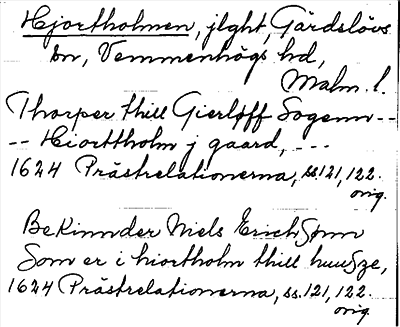 Hjortholmen, jlght, Gärdslövs
sn, Vemmenhögs hd,
Malm. l.
Thorper thill Gierløff Sogenn --
-- Hiorttholm j gaard, ---
1624 Prästrelationerna, ss 121, 122.
orig.
Bekinnder Niels Erichsønn
Som er i hiortholm thill huusze,
1624 Prästrelationerna, ss. 121, 122.
orig.